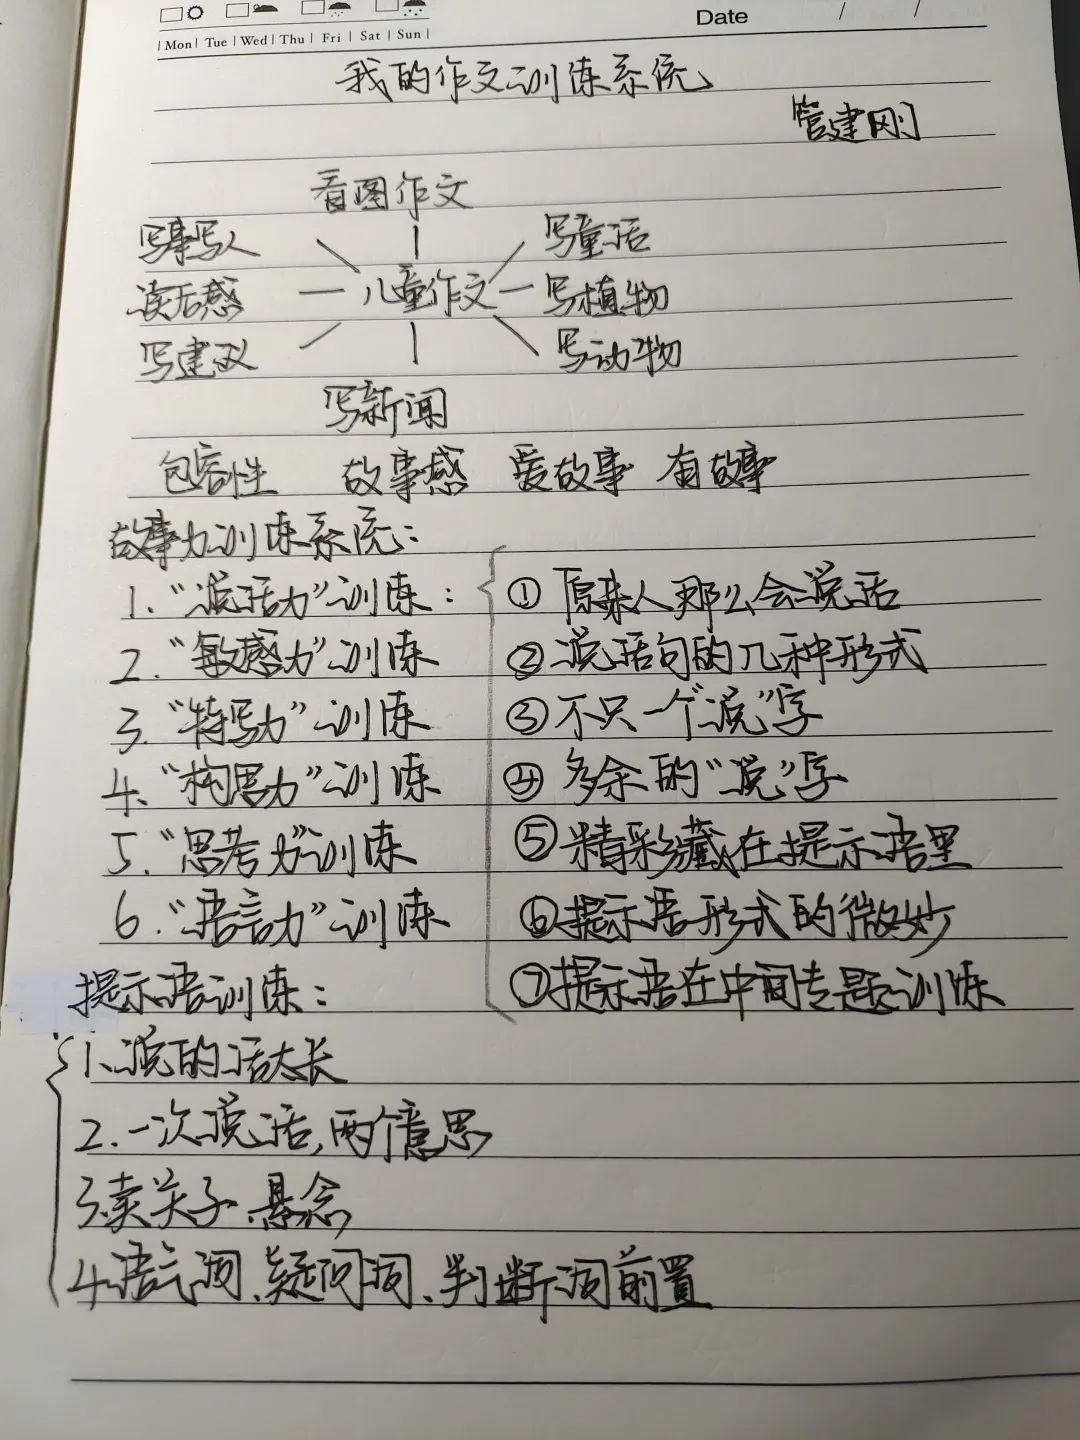 Date / /
Mon Tue Wed Thu Fri Sat Sun
我的作文训练系统
管建刚
看图作文
写事写人 写童话
读后感 儿童作文 写植物
写建议 写动物
写新闻
包容性 故事感 爱故事 有故事
故事力训练系统:
1. “说话力”训练: ① 原来人那么会说话
2. “敏感力”训练 ② 说话句的几种形式
3. “特写力”训练 ③ 不只一个“说”字
4. “构思力”训练 ④ 多余的“说”字
5. “思考力”训练 ⑤ 精彩藏在提示语里
6. “语言力”训练 ⑥ 提示语形式的微妙
提示语训练: ⑦ 提示语在中间专题训练
1、说的话太长
2. 一次说话,两个意思
3.卖关子、悬念
4.语气词、疑问词、判断词前置